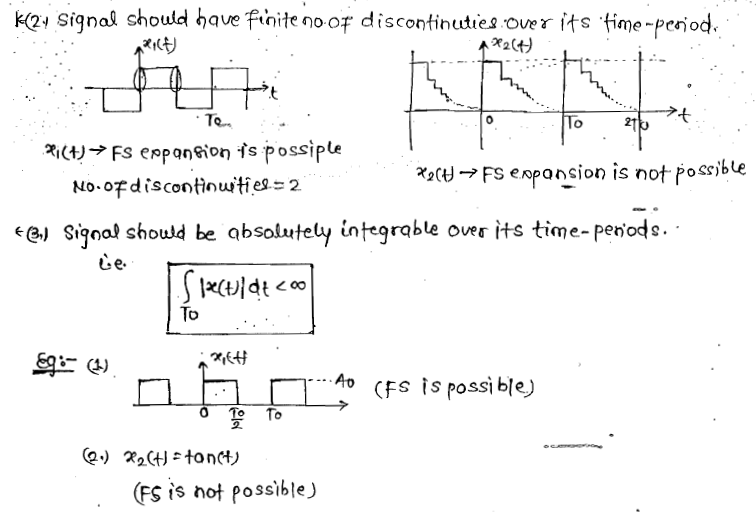 *(2.) Signal should have finite no. of discontinuties over its time-period.
x₁(t)
t
To
x₂(t)
0
To
2To
t
x₁(t) → FS expansion is possiple
No. of discontinuities = 2
x₂(t) → FS expansion is not possible
*(3.) Signal should be absolutely integrable over its time-periods.
i.e.
∫To |x(t)| dt < ∞
Eg:- (1)
x₁(t)
Ao
(FS is possible)
0
To/2
To
(2.) x₂(t) = tan(t)
(FS is not possible)